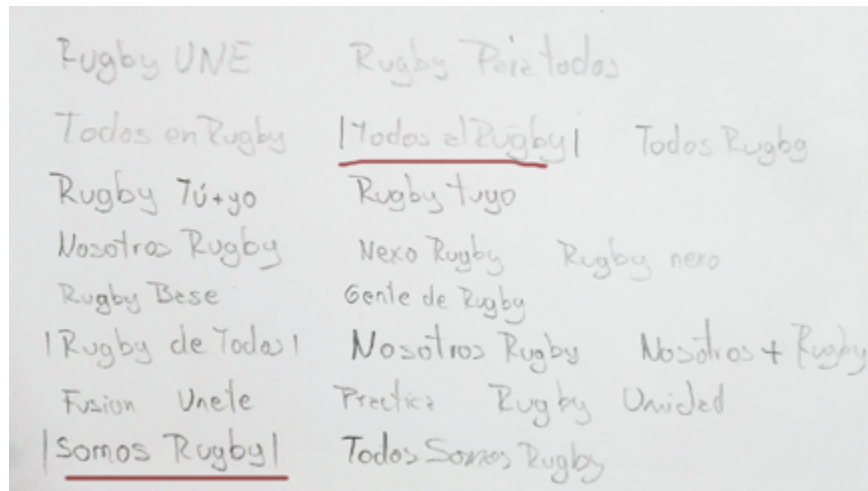 Rugby UNE Rugby Para todos
Todos en Rugby |Todos al Rugby| Todos Rugby
Rugby Tú+yo Rugby tuyo
Nosotros Rugby Nexo Rugby Rugby nexo
Rugby Base Gente de Rugby
|Rugby de Todos| Nosotros Rugby Nosotros + Rugby
Fusion Unete Practica Rugby Unidad
|Somos Rugby| Todos Somos Rugby